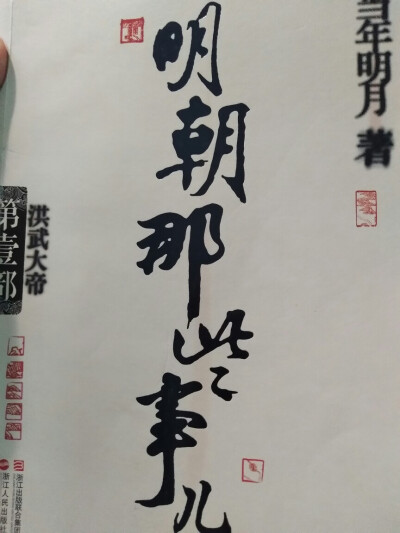 当年明月 著
明朝那些事儿
洪武大帝
第壹部
浙江出版联合集团
浙江人民出版社